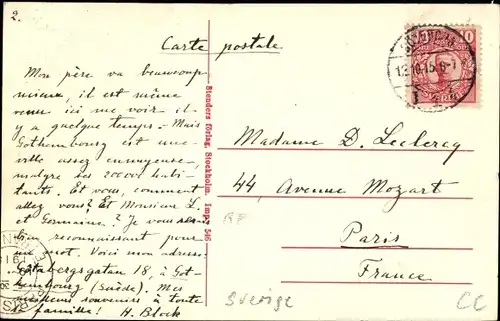 2.
Carte postale
Mon père va beaucoup
mieux, il est même
venu ici me voir il-
y a quelque temps. - Mais
Gothembourg est une
ville assez ennuyeuse,
malgré ses 200000 habi-
tants. Et vous, comment
allez vous? Et Monsieur L.
et Germaine? Je vous se-
reconnaissant pour
un mot. Voici mon adres-
Götabergsgatan 18, à Got-
hembourg (Suède). Mes
meilleurs souvenirs à toute
famille! H. Block
Stenders förlag, Stockholm. Imp. 546
10
SVERIGE
13.10.15. 6-7
Madame D. Leclercq
44, Avenue Mozart
Paris
France
RF
Sverige
CC